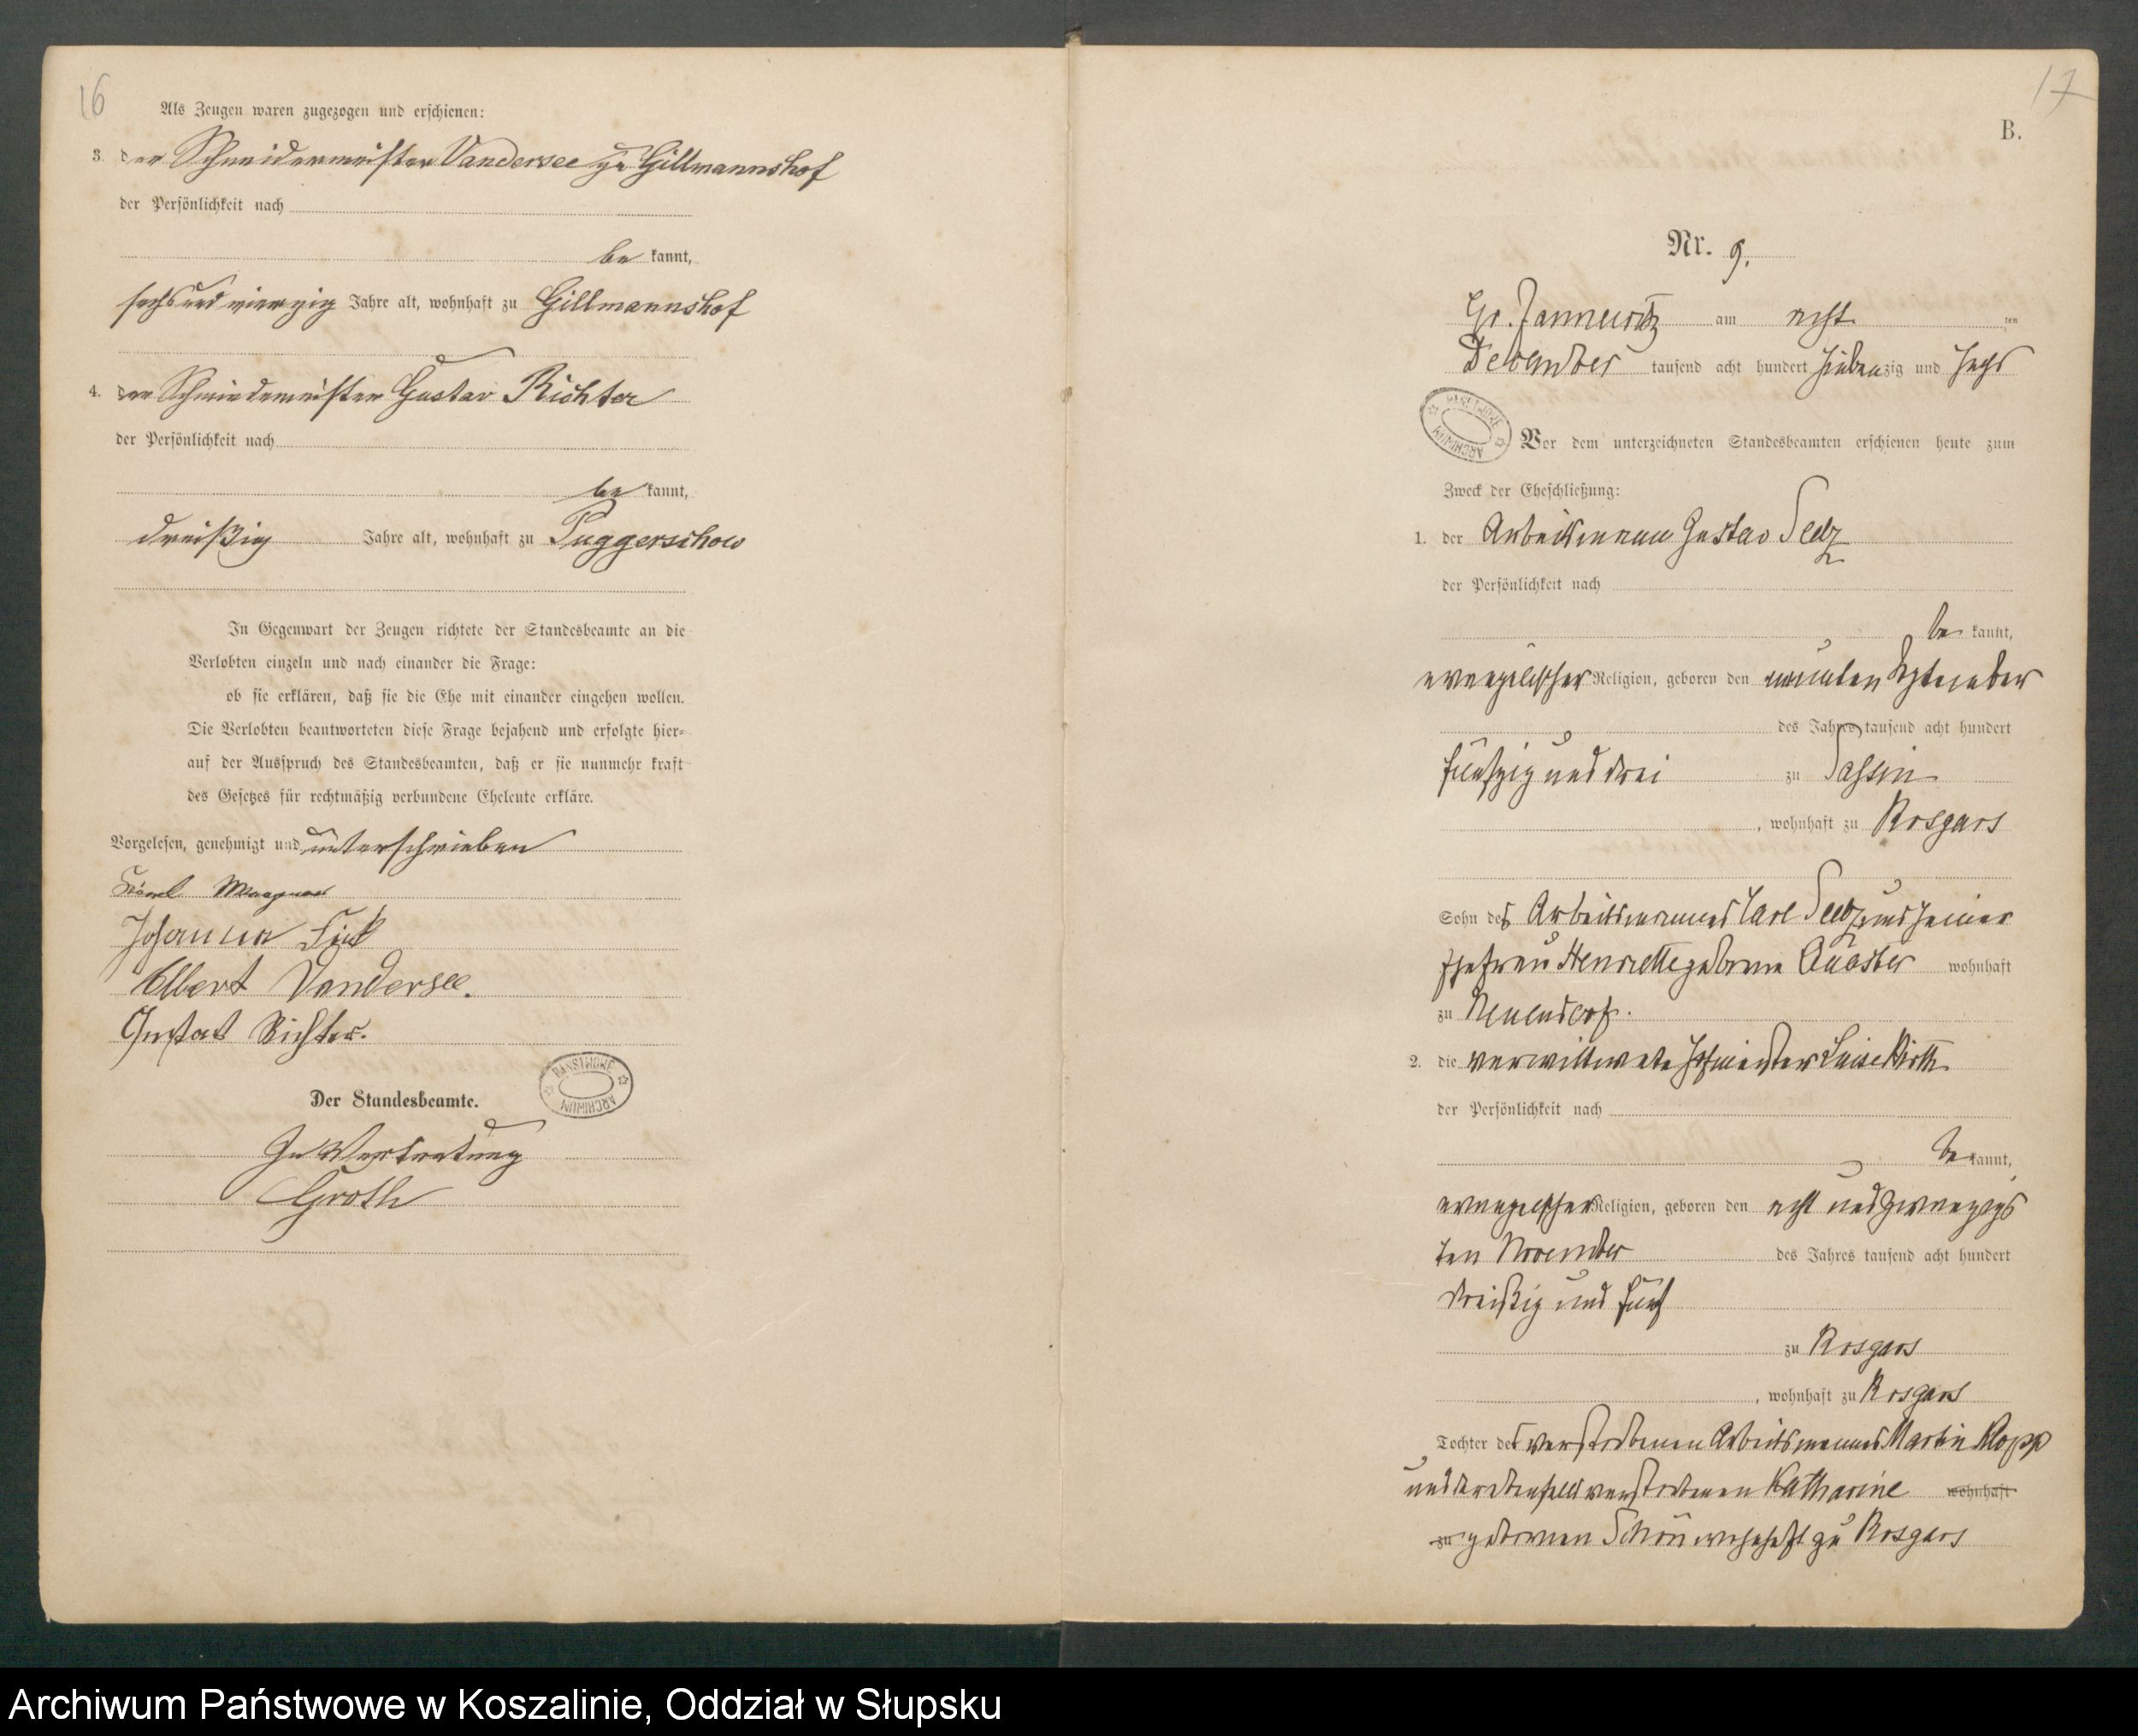 16
Als Zeugen waren zugezogen und erschienen:
3. der Schneidermeister Vandersee zu Gillmannshof
der Persönlichkeit nach
be kannt,
sechsundvierzig Jahre alt, wohnhaft zu Gillmannshof
4. der Schmiedemeister Gustav Richter
der Persönlichkeit nach
be kannt,
dreißig Jahre alt, wohnhaft zu Puggerschow
In Gegenwart der Zeugen richtete der Standesbeamte an die
Verlobten einzeln und nach einander die Frage:
ob sie erklären, daß sie die Ehe mit einander eingehen wollen.
Die Verlobten beantworteten diese Frage bejahend und erfolgte hier-
auf der Ausspruch des Standesbeamten, daß er sie nunmehr kraft
des Gesetzes für rechtmäßig verbundene Eheleute erkläre.
Vorgelesen, genehmigt und unterschrieben
Johanna Fick
Albert Vandersee.
Gustav Richter.
PANSTWOWE ARCHIWUM
Der Standesbeamte.
In Vertretung
Groth
17
B.
Nr. 9.
Gr. Jannewitz am acht ten
December tausend acht hundert siebenzig und sechs
PANSTWOWE ARCHIWUM
Vor dem unterzeichneten Standesbeamten erschienen heute zum
Zweck der Eheschließung:
1. der Arbeitsmann Gustav
der Persönlichkeit nach
be kannt,
evangelischer Religion, geboren den neunten September
des Jahres tausend acht hundert
fünfzig und drei zu Sassin
, wohnhaft zu Rosgars
Sohn des Arbeitsmannes Carl und seiner
Ehefrau Henriette geborne wohnhaft
zu Neuendorf.
2. die verwittwete Hofmeister Luise
der Persönlichkeit nach
be kannt,
evangelischer Religion, geboren den acht und zwanzigs
ten November des Jahres tausend acht hundert
dreißig und fünf
zu Rosgars
, wohnhaft zu Rosgars
Tochter des verstorbenen Arbeitsmannes Martin Klopp
und der ebenfalls verstorbenen Katharine wohnhaft
zu gebornen Schön wohnhaft zu Rosgars
Archiwum Państwowe w Koszalinie, Oddział w Słupsku